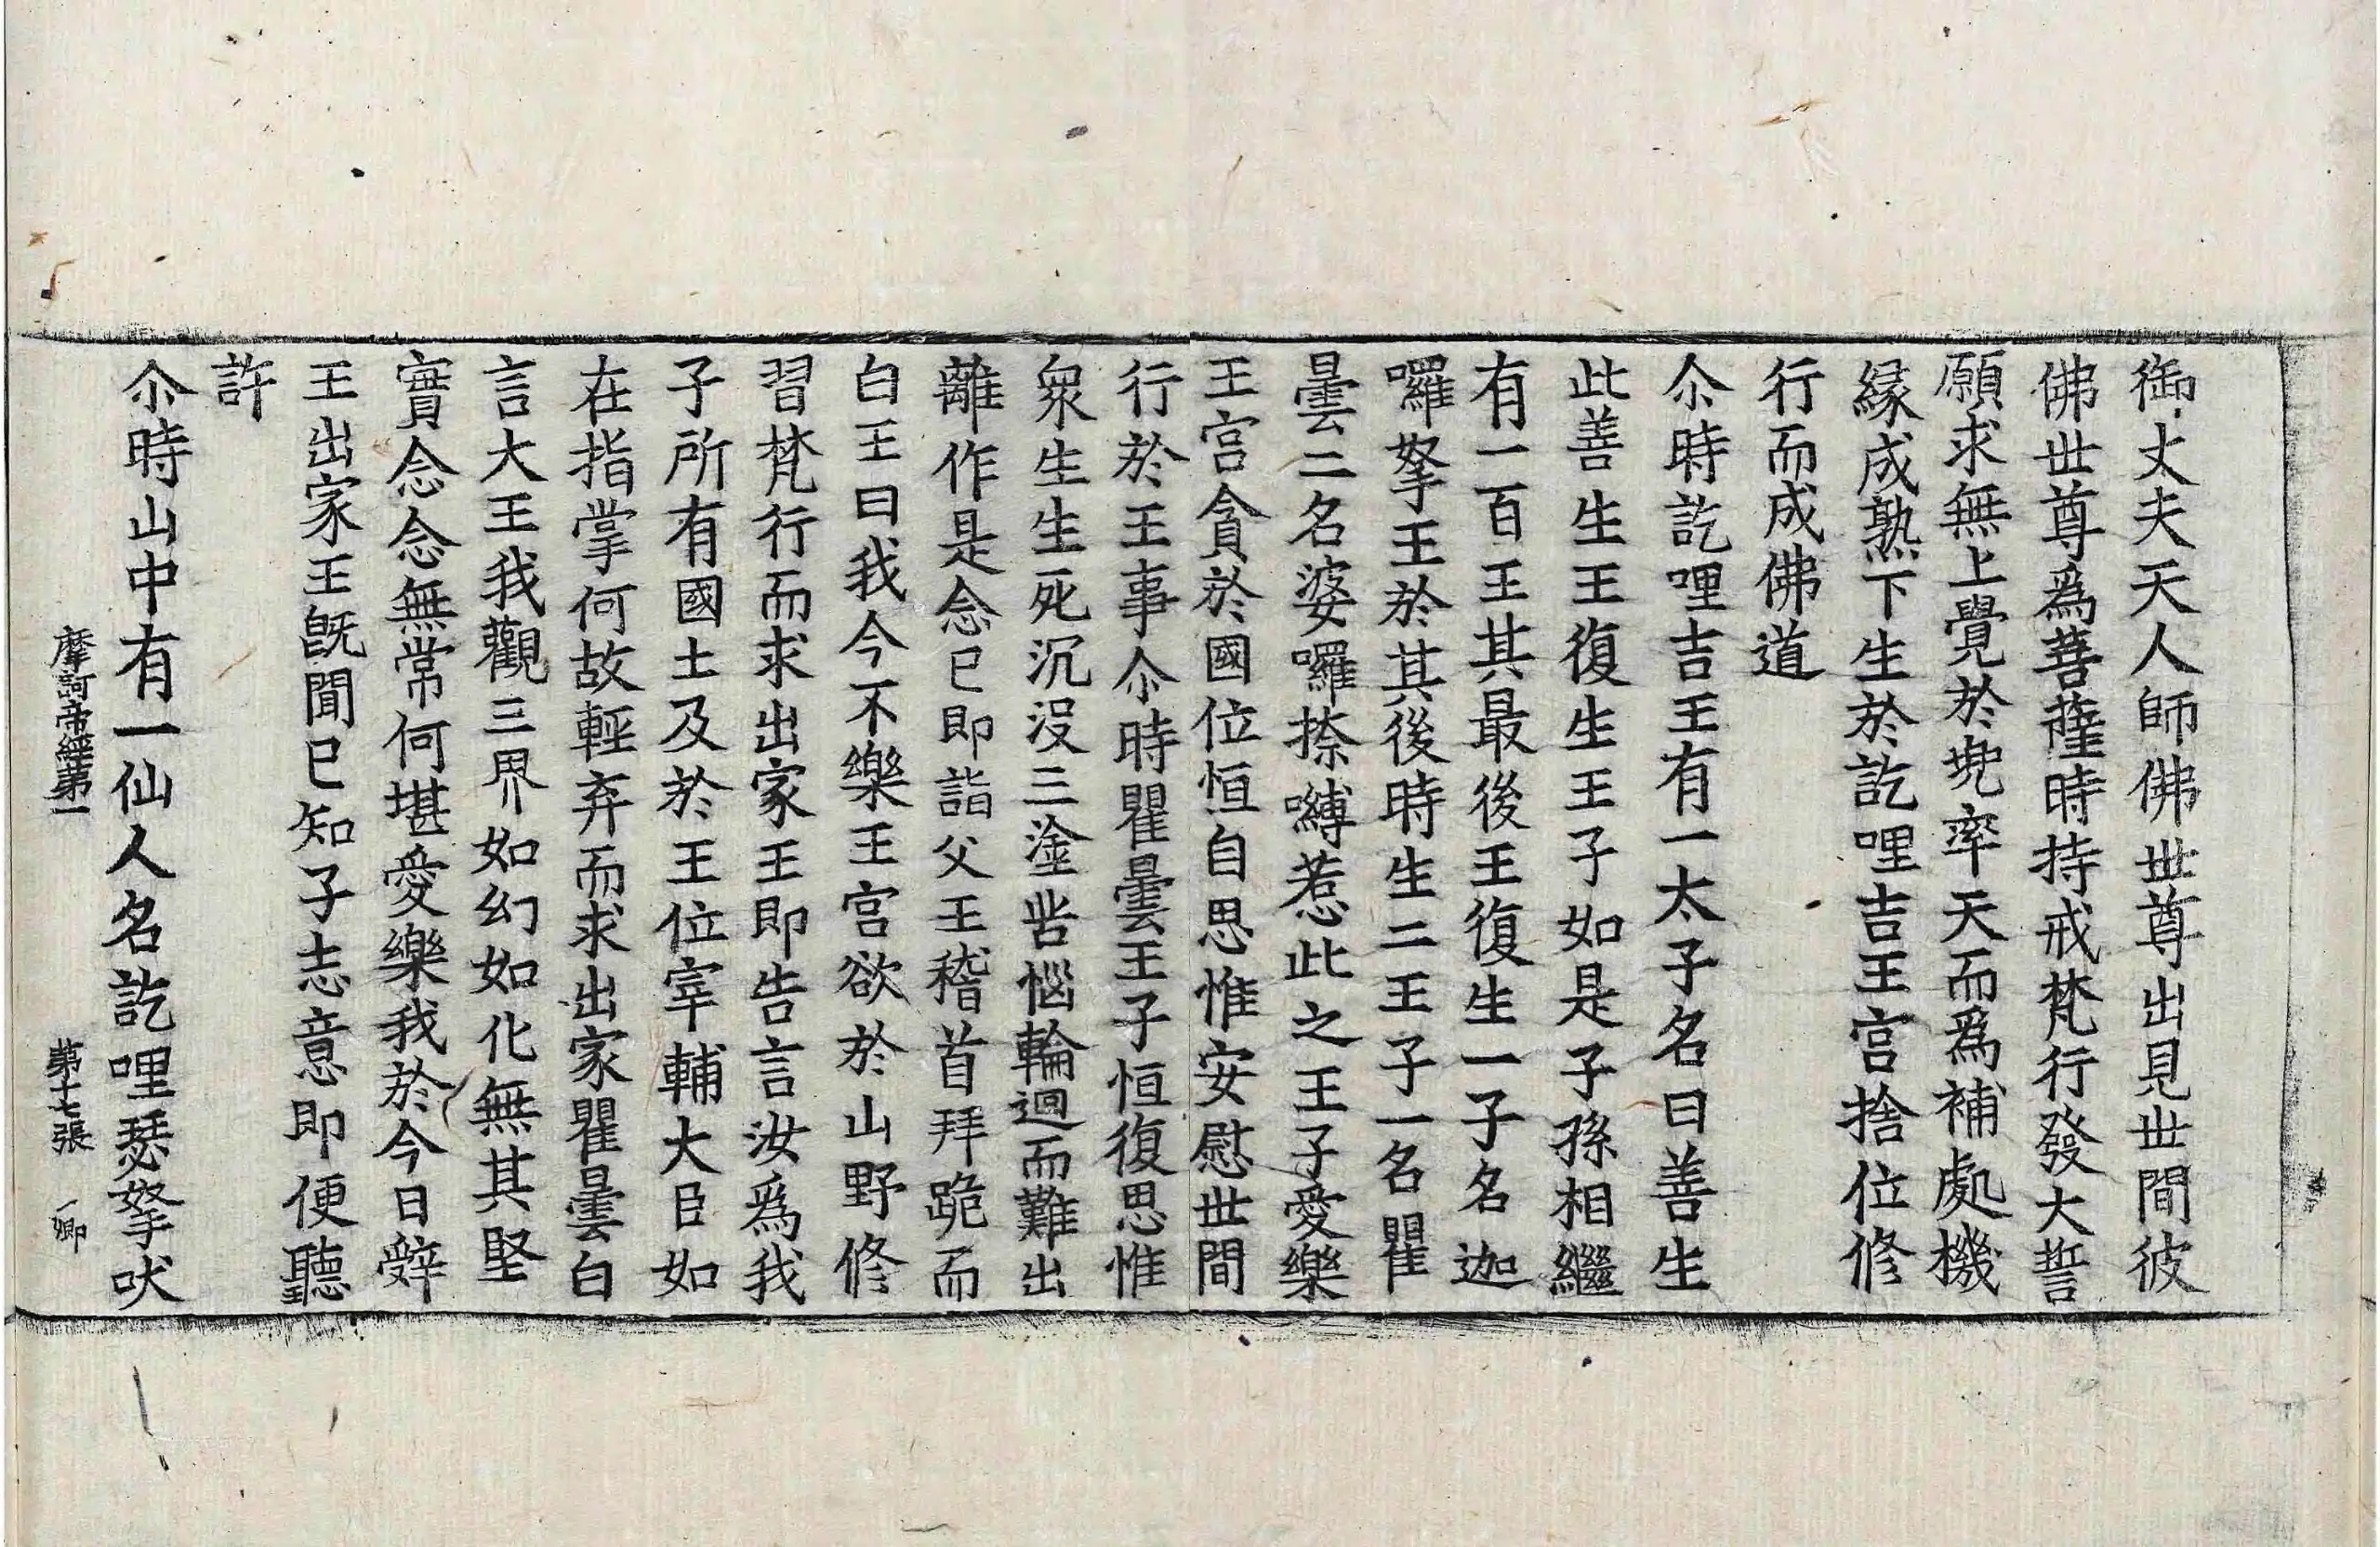 御丈夫天人師佛世尊出見世間彼
佛世尊爲菩薩時持戒梵行發大誓
願求無上覺於兠率天而爲補處機
縁成熟下生於訖哩吉王宫捨位修
行而成佛道
尒時訖哩吉王有一太子名曰善生
此善生王復生王子如是子孫相繼
有一百王其最後王復生一子名迦
囉拏王於其後時生二王子一名瞿
曇二名婆囉捺嚩惹此之王子愛樂
王宫貪於國位恒自思惟安慰世間
行於王事尒時瞿曇王子恒復思惟
衆生生死沉没三塗苦惱輪迴而難出
離作是念已即詣父王稽首拜跪而
白王曰我今不樂王宫欲於山野修
習梵行而求出家王即告言汝爲我
子所有國土及於王位宰輔大臣如
在指掌何故輕弃而求出家瞿曇白
言大王我觀三界如幻如化無其堅
實念念無常何堪愛樂我於今日辤
王出家王旣聞已知子志意即便聽
許
尒時山中有一仙人名訖哩瑟拏吠
摩訶帝經第一 第十七張 一卿